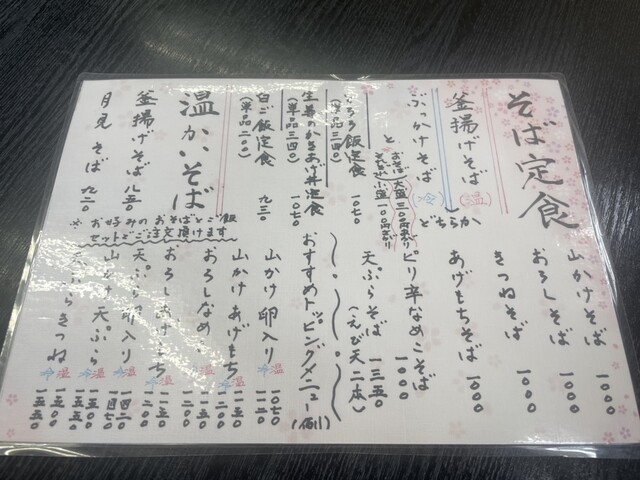 そば定食
釜揚げそば（温）
ぶっかけそば（冷）
どちらか
と
おそば大盛三〇〇円あがり
そばなし小盛一〇〇円さがり
とろろ飯定食 一〇七〇
（単品三四〇）
生姜のかきあげ丼定食 一〇七〇
（単品三四〇）
白ご飯定食 九三〇
（単品二〇〇）
温かいそば
釜揚げそば 八五〇
月見そば 九二〇
※お好みのおそばとご飯
セットでご注文頂けます
山かけそば 一〇〇〇
おろしそば 一〇〇〇
きつねそば 一〇〇〇
あげもちそば 一〇〇〇
ピリ辛なめこそば 一〇〇〇
天ぷらそば 一三五〇
（えび天二本）
おすすめトッピングメニュー（例）
山かけ卵入り 一〇七〇
山かけあげもち 温 冷
おろしなめこ
おろしあげもち 温 冷
天ぷら卵入り 温 冷
山かけ天ぷら 温 冷
天ぷらきつね 温 冷 一五五〇